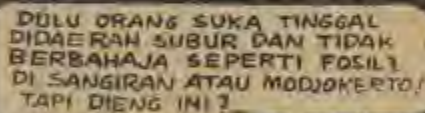 DULU ORANG SUKA TINGGAL
DIDAERAH SUBUR DAN TIDAK
BERBAHAJA SEPERTI FOSIL2
DI SANGIRAN ATAU MODJOKERTO!
TAPI DIENG INI?